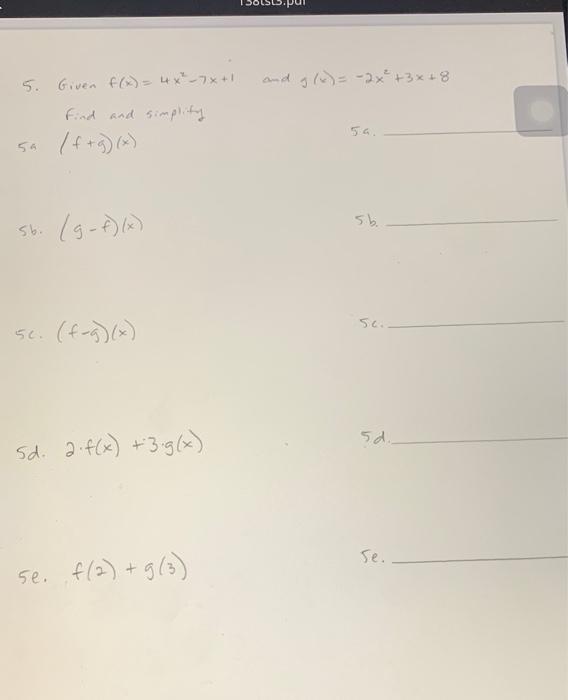 5. Given f(x) = 4x²-7x+1 and g(x) = -2x²+3x+8
Find and simplify
5a (f+g)(x) 5a.
5b. (g-f)(x) 5b.
5c. (f-g)(x) 5c.
5d. 2·f(x) +3·g(x) 5d.
5e. f(2) + g(3) 5e.